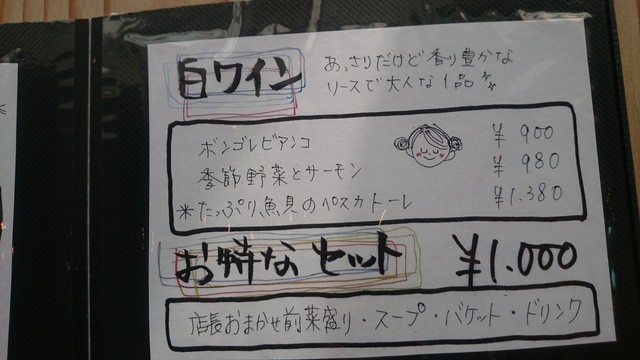 白ワイン
あっさりだけど香り豊かな
ソースで大人な1品
ボンゴレビアンコ ¥900
季節野菜とサーモン ¥980
*たっぷり魚貝のペスカトーレ ¥1.380
お得なセット ¥1.000
店長おまかせ前菜盛り・スープ・バケット・ドリンク